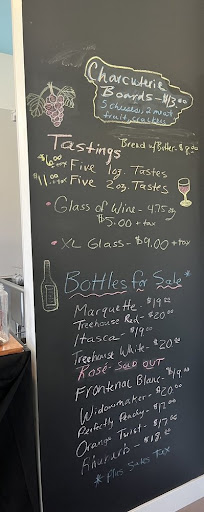 Charcuterie
Boards - $13.00
5 cheeses, 2 meat
fruit, crackers
Tastings
Bread w/Butter - $8.00
$6.00 + tax Five 1oz. Tastes
$11.00 + tax Five 2oz. Tastes
• Glass of Wine - 4.75 oz
$5.00 + tax
• XL Glass - $9.00 + tax
Bottles for Sale*
Marquette - $19.00
Treehouse Red - $20.00
Itasca - $19.00
Treehouse White - $20.00
Rosé - SOLD OUT
Frontenac Blanc - $19.00
Widowmaker - $20.00
Perfectly Peachy - $17.00
Orange Twist - $17.00
Rhubarb - $18.00
*Plus Sales Tax